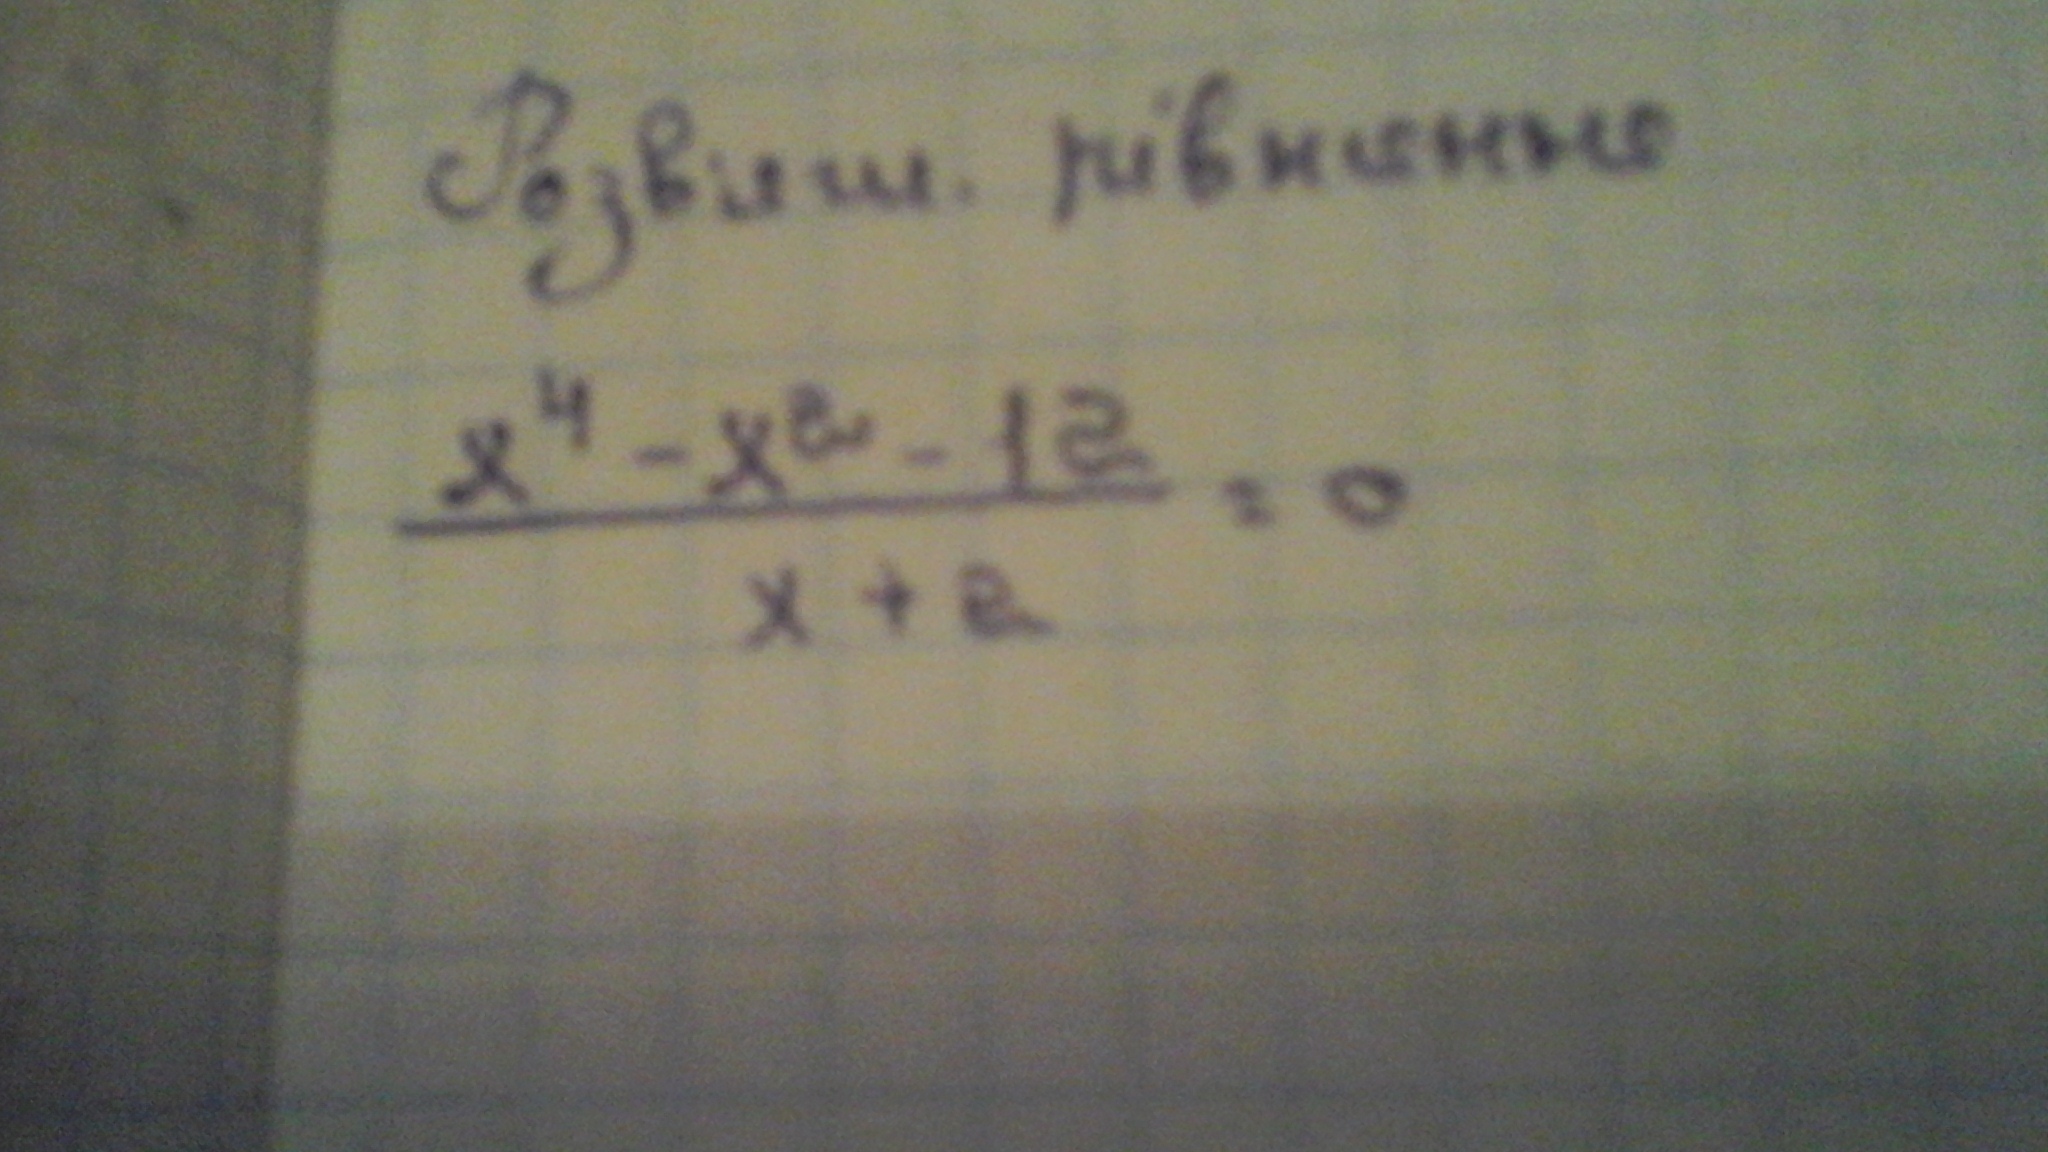 Розвʼяж. рівняння
x⁴ - x² - 12
x + 2
= 0